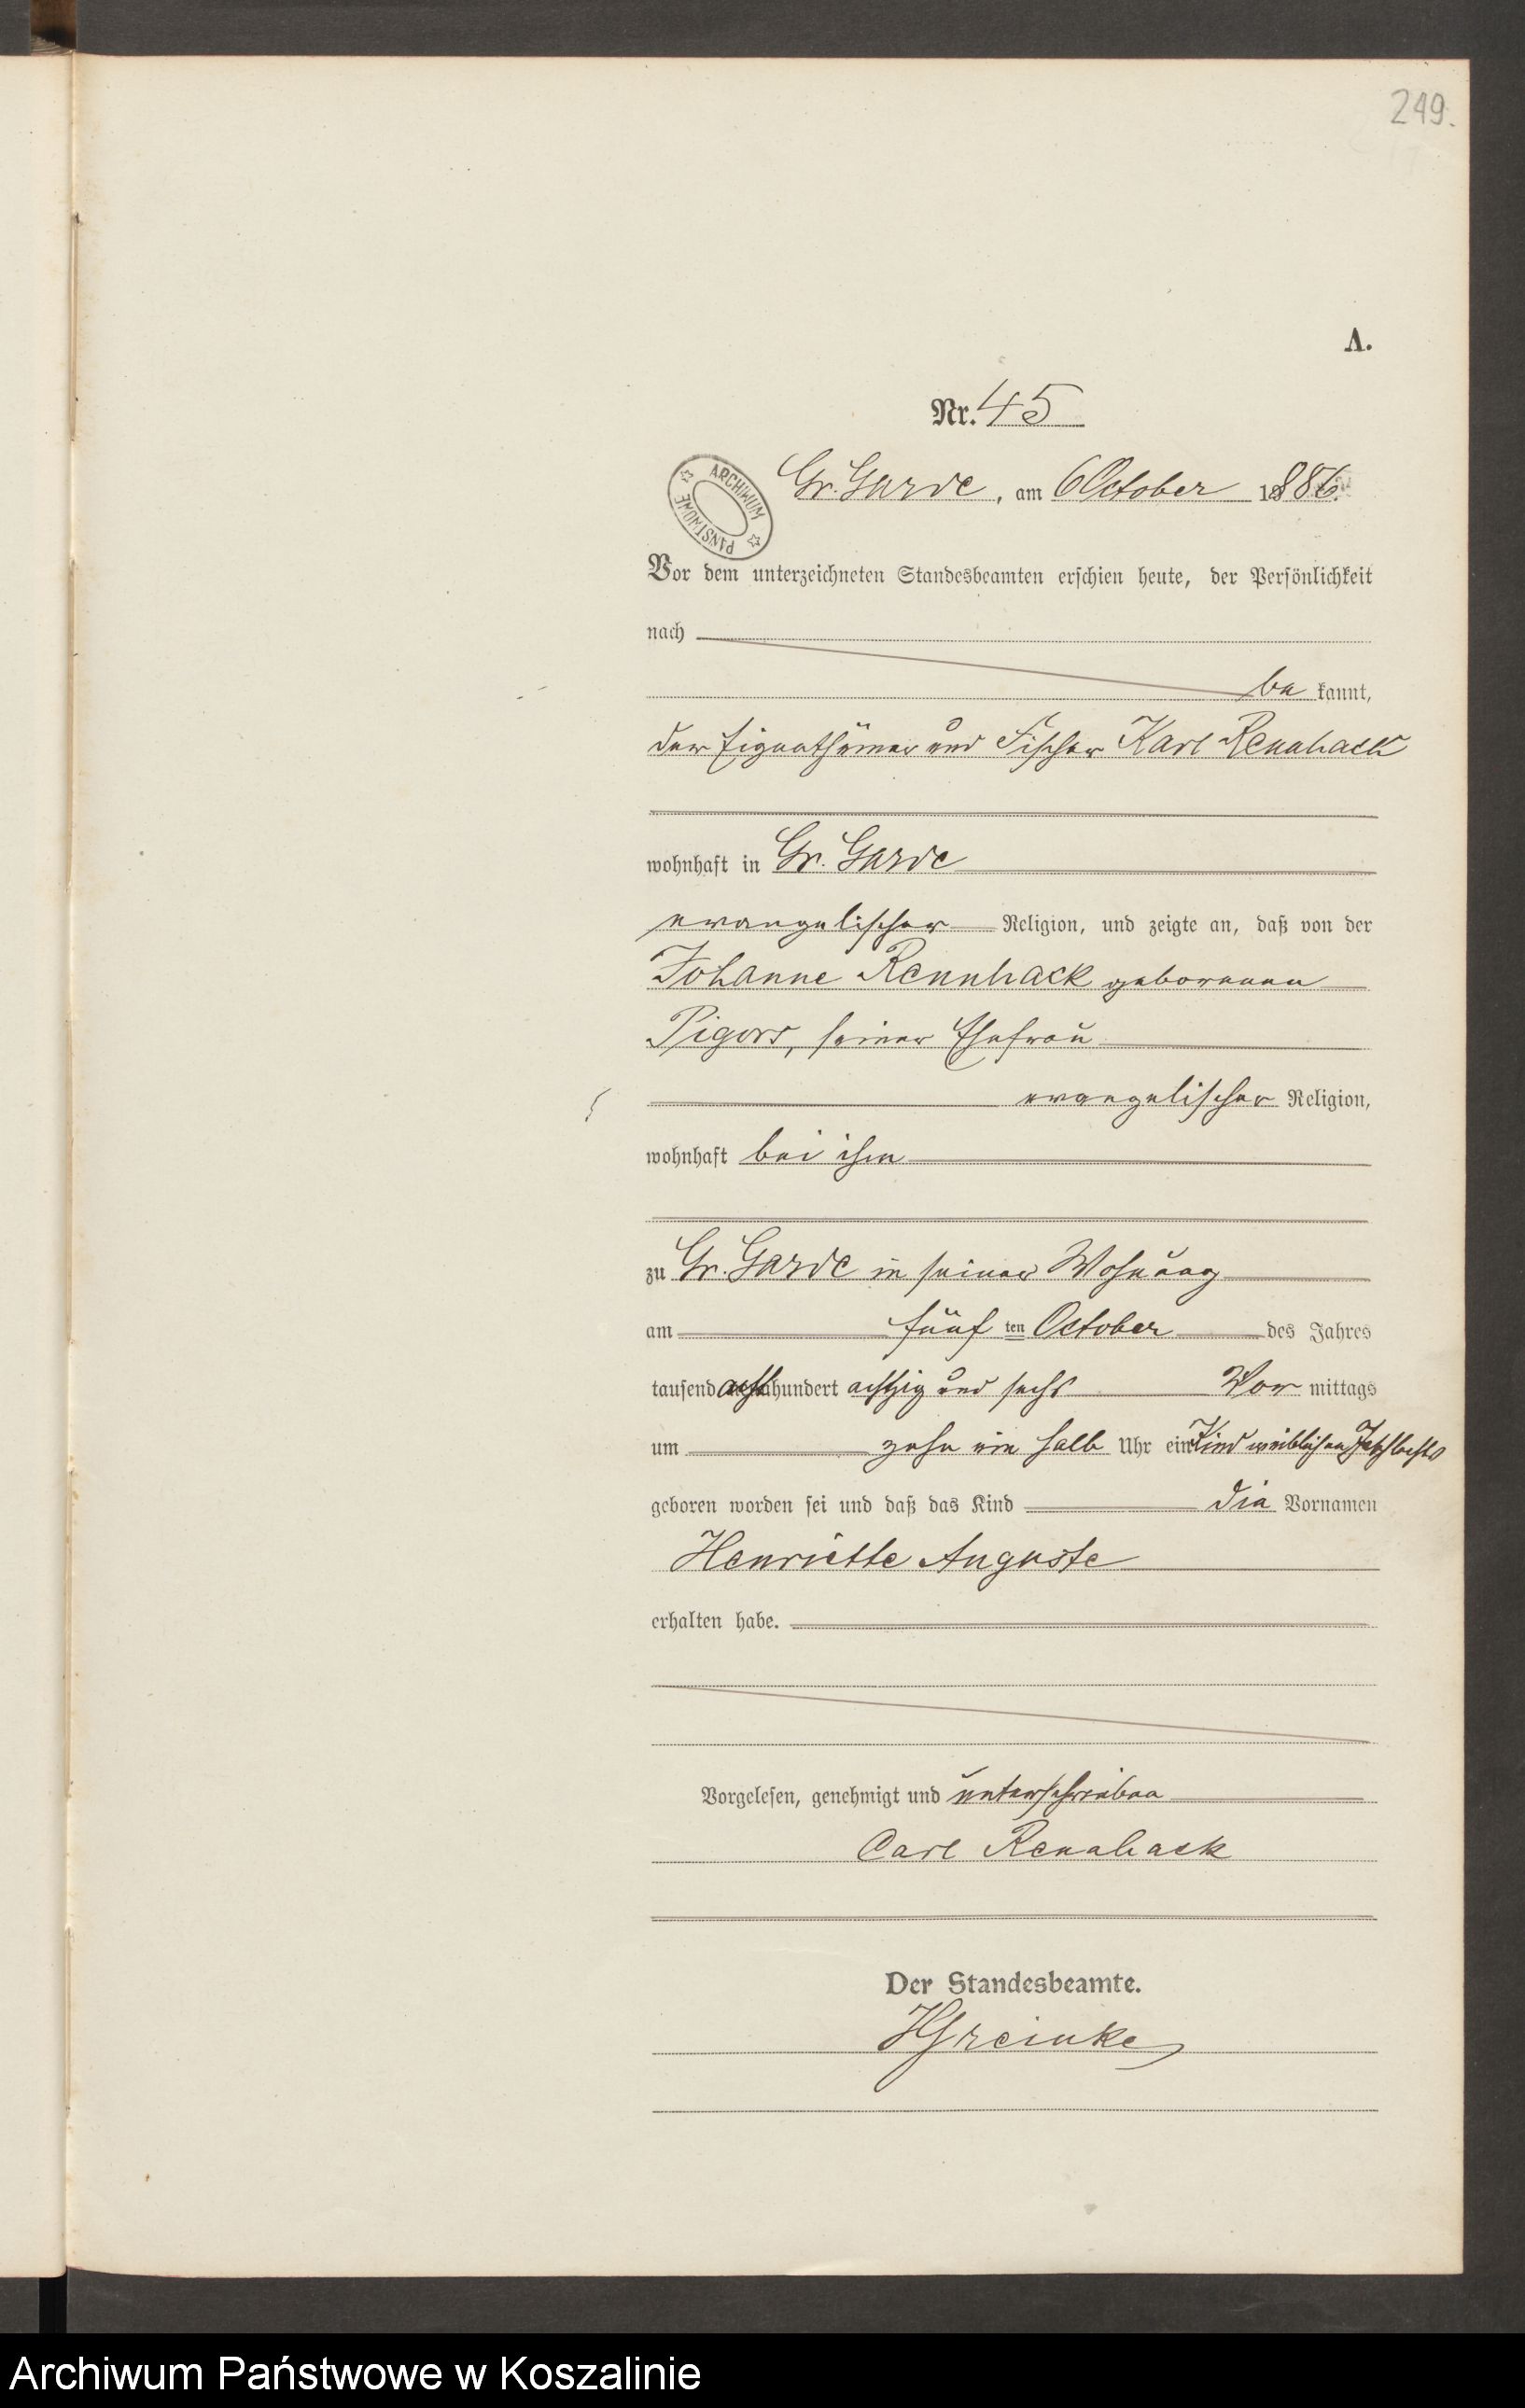 249.
A.
Nr. 45
ARCHIWUM PAŃSTWOWE
Gr. Garde, am 6 October 1886.
Vor dem unterzeichneten Standesbeamten erschien heute, der Persönlichkeit
nach
be kannt,
der Eigenthümer und Fischer Karl Rennhack
wohnhaft in Gr. Garde
evangelischer Religion, und zeigte an, daß von der
Johanne Rennhack geborenen
Pigors, seiner Ehefrau
evangelischer Religion,
wohnhaft bei ihm
zu Gr. Garde in seiner Wohnung
am fünf ten October des Jahres
tausend achthundert achtzig und sechs Vor mittags
um zehn ein halb Uhr ein Kind weiblichen Geschlechts
geboren worden sei und daß das Kind die Vornamen
Henriette Auguste
erhalten habe.
Vorgelesen, genehmigt und unterschrieben
Carl Rennhack
Der Standesbeamte.
Archiwum Państwowe w Koszalinie